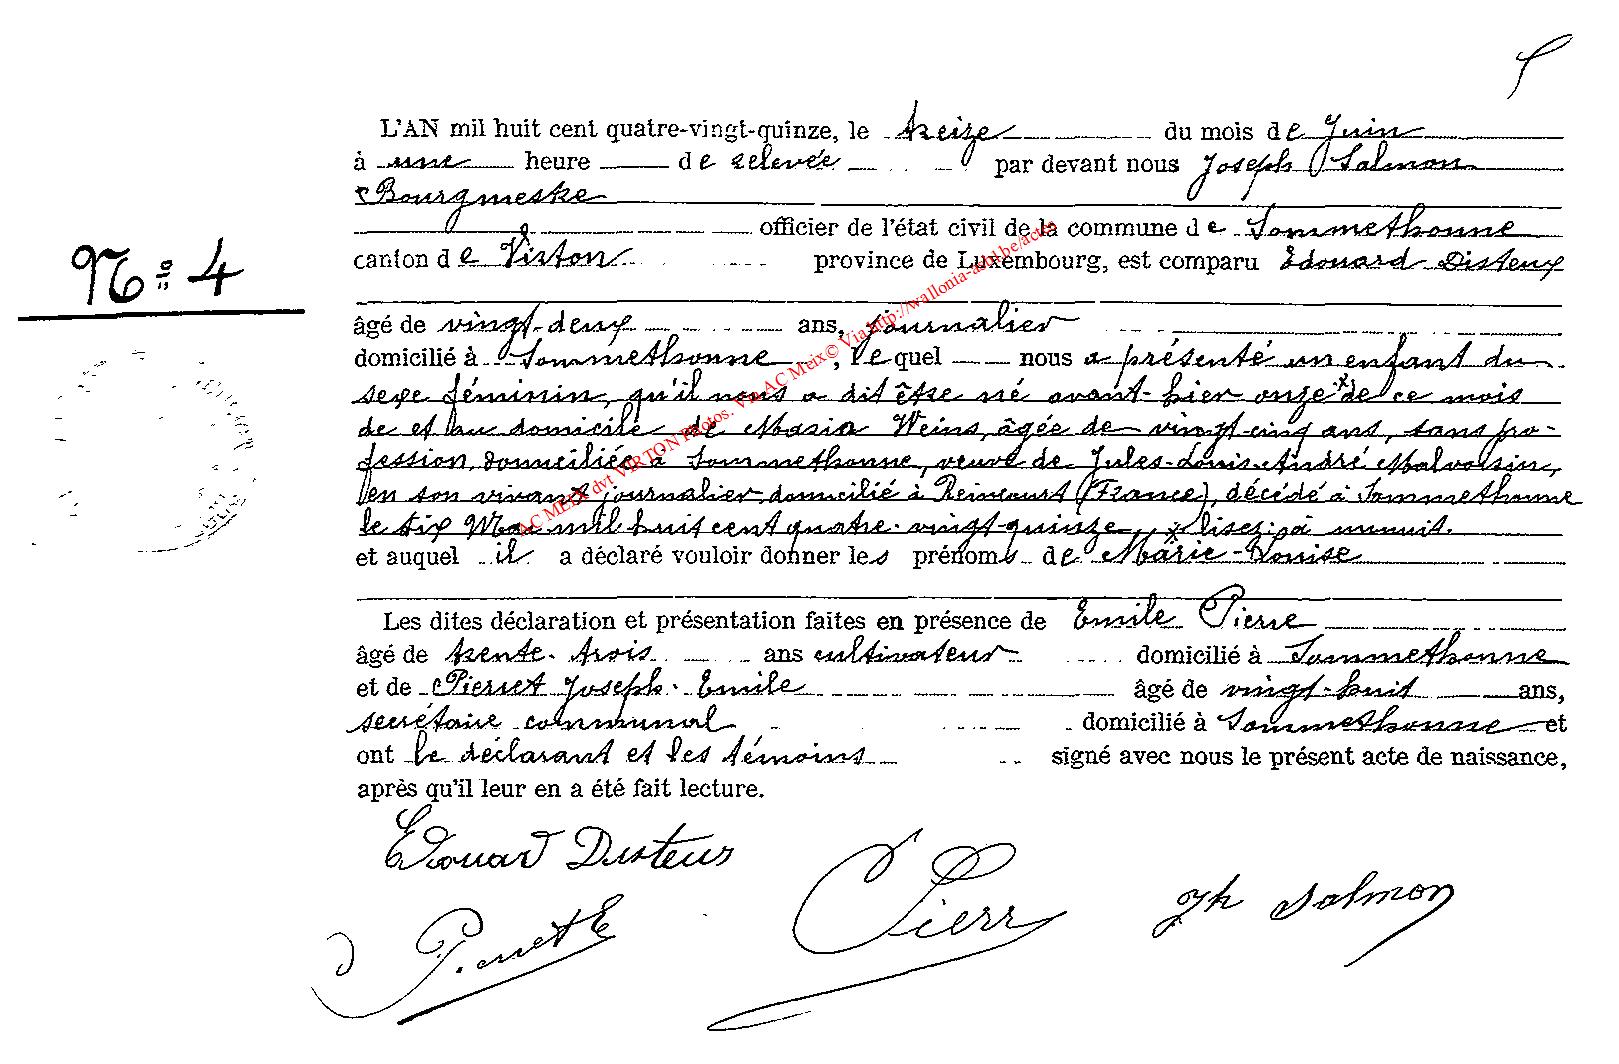 L'AN mil huit cent quatre-vingt-quinze, le treize du mois de Juin
à une heure de relevée par devant nous Joseph Salmon
Bourgmestre
officier de l'état civil de la commune de Sommethonne
canton de Virton province de Luxembourg, est comparu Edouard Disteux
N° 4
âgé de vingt-deux ans, journalier
domicilié à Sommethonne, lequel nous a présenté un enfant du
sexe féminin, qu'il nous a dit être né avant-hier onze * de ce mois
de et au domicile de Maria Weins, âgée de vingt-cinq ans, sans pro-
fession, domiciliée à Sommethonne, veuve de Jules-Louis-André Malvoisin,
en son vivant journalier, domicilié à Reincourt (France), décédé à Sommethonne
le six Mai mil huit cent quatre-vingt-quinze, * lisez: à minuit.
et auquel il a déclaré vouloir donner les prénoms de Marie-Louise
Les dites déclaration et présentation faites en présence de Emile Pierre
âgé de trente-trois ans cultivateur domicilié à Sommethonne
et de Pierret Joseph-Emile âgé de vingt-huit ans,
secrétaire communal domicilié à Sommethonne et
ont le déclarant et les témoins signé avec nous le présent acte de naissance,
après qu'il leur en a été fait lecture.
Edouard Disteux
Pierret E Pierre Jh Salmon
AC MEIX dvt VIRTON Photos. Via AC Meix© Via http://wallonia-asbl.be/actes